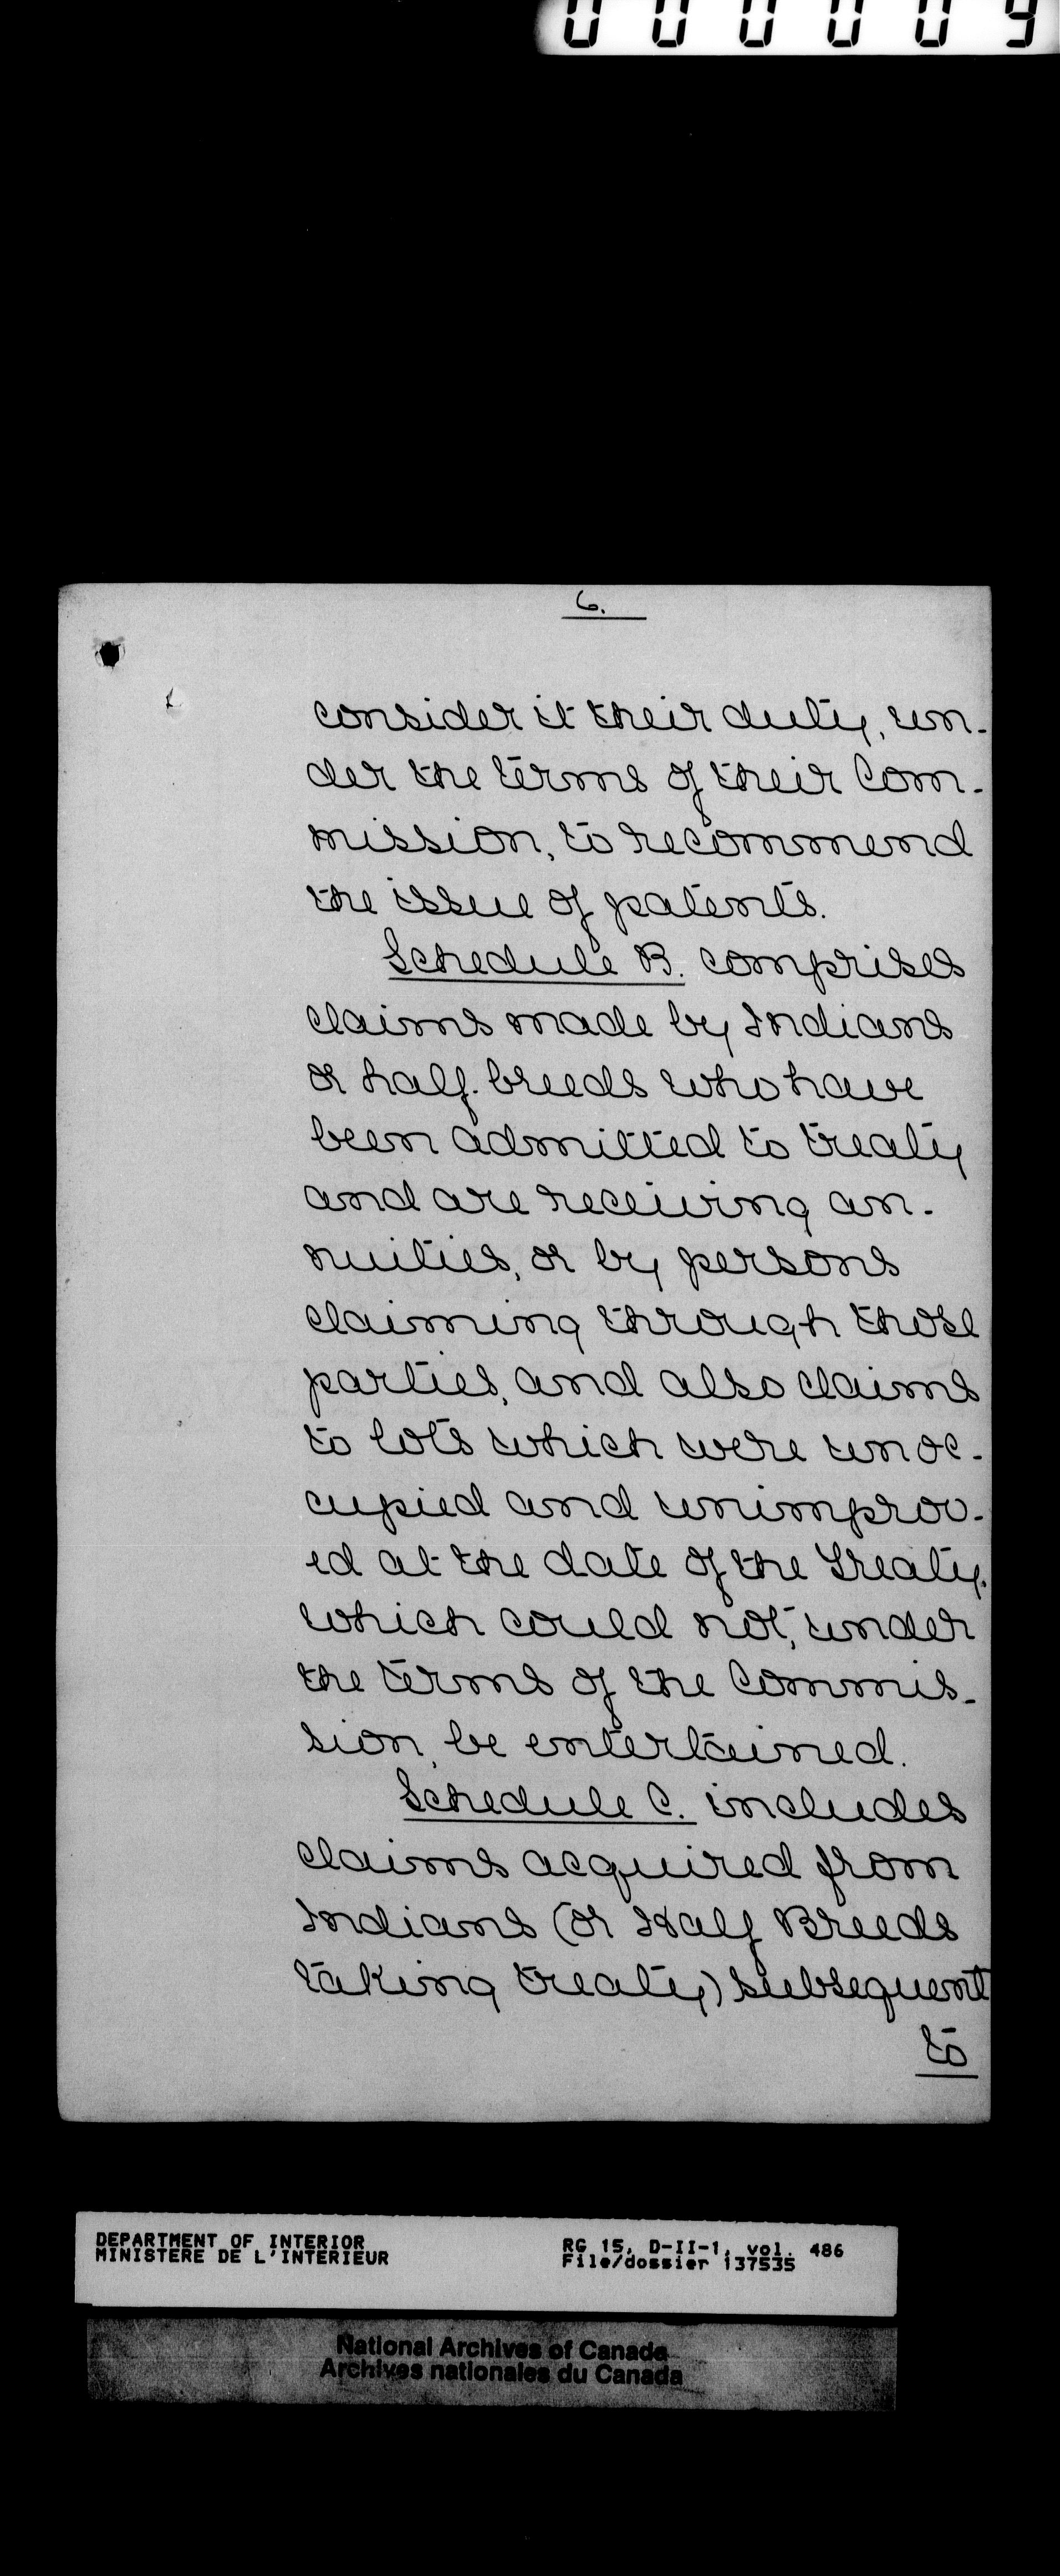 000009
6.
consider it their duty, un-
der the terms of their Com-
mission, to recommend
the issue of patents.
Schedule B. comprises
claims made by Indians
or half-breeds who have
been admitted to treaty
and are receiving an-
nuities, or by persons
claiming through those
parties, and also claims
to lots which were unoc-
cupied and unimprov-
ed at the date of the Treaty,
which could not, under
the terms of the Commis-
sion, be entertained.
Schedule C. includes
claims acquired from
Indians (or Half Breeds
taking treaty) subsequent
to
DEPARTMENT OF INTERIOR
MINISTERE DE L'INTERIEUR
RG 15, D-II-1, vol. 486
File/dossier 137535
National Archives of Canada
Archives nationales du Canada